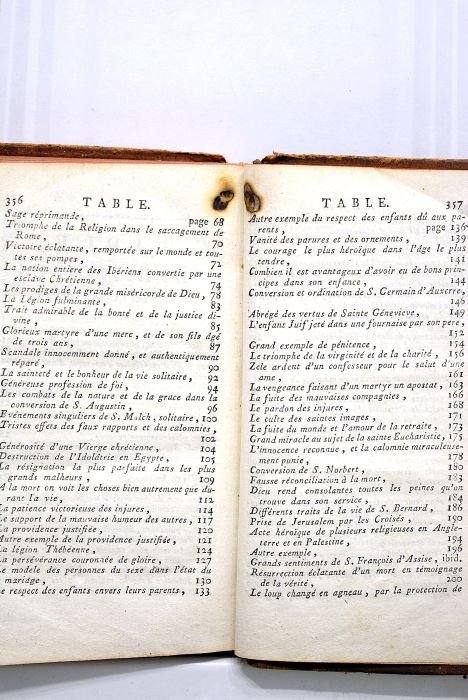 356 TABLE.
Sage réprimande, page 68
Triomphe de la Religion dans le saccagement de
Rome, 70
Victoire éclatante, remportée sur le monde et tou-
tes ses pompes, 72
La nation entiere des Ibériens convertie par une
esclave Chrétienne, 74
Les prodiges de la grande miséricorde de Dieu, 78
La Légion fulminante, 83
Trait admirable de la bonté et de la justice di-
vine, 85
Glorieux martyre d'une mere, et de son fils âgé
de trois ans, 87
Scandale innocemment donné, et authentiquement
réparé, 90
La sainteté et le bonheur de la vie solitaire, 92
Généreuse profession de foi, 94
Les combats de la nature et de la grace dans la
conversion de S. Augustin, 96
Evénements singuliers de S. Malch, solitaire, 100
Tristes effets des faux rapports et des calomnies,
102
Générosité d'une Vierge chrétienne, 104
Destruction de l'Idolâtrie en Egypte, 105
La résignation la plus parfaite dans les plus
grands malheurs, 109
A la mort on voit les choses bien autrement que du-
rant la vie, 112
La patience victorieuse des injures, 114
Le support de la mauvaise humeur des autres, 117
La providence justifiée, 120
Autre exemple de la providence justifiée, 121
La légion Thébéenne, 124
La persévérance couronnée de gloire, 127
Le modele des personnes du sexe dans l'état du
mariage, 130
Le respect des enfants envers leurs parents, 133
TABLE. 357
Autre exemple du respect des enfants dû aux pa-
rents, page 136
Vanité des parures et des ornements, 139
Le courage le plus héroïque dans l'âge le plus
tendre, 141
Combien il est avantageux d'avoir eu de bons prin-
cipes dans son enfance, 144
Conversion et ordination de S. Germain d'Auxerre,
146
Abrégé des vertus de Sainte Génevieve, 149
L'enfant Juif jeté dans une fournaise par son pere,
152
Grand exemple de pénitence, 154
Le triomphe de la virginité et de la charité, 156
Zele ardent d'un confesseur pour le salut d'une
ame, 161
La vengeance faisant d'un martyr un apostat, 163
La fuite des mauvaises compagnies, 166
Le pardon des injures, 168
Le culte des saintes images, 171
La fuite du monde et l'amour de la retraite, 173
Grand miracle au sujet de la sainte Eucharistie, 175
L'innocence reconnue, et la calomnie miraculeuse-
ment punie, 178
Conversion de S. Norbert, 180
Fausse réconciliation à la mort, 183
Dieu rend consolantes toutes les peines qu'on
trouve dans son service, 184
Différents traits de la vie de S. Bernard, 186
Prise de Jerusalem par les Croisés, 190
Acte héroïque de plusieurs religieuses en Angle-
terre et en Palestine, 194
Autre exemple, 196
Grands sentiments de S. François d'Assise, ibid.
Résurrection éclatante d'un mort en témoignage
de la vérité, 200
Le loup changé en agneau, par la protection de